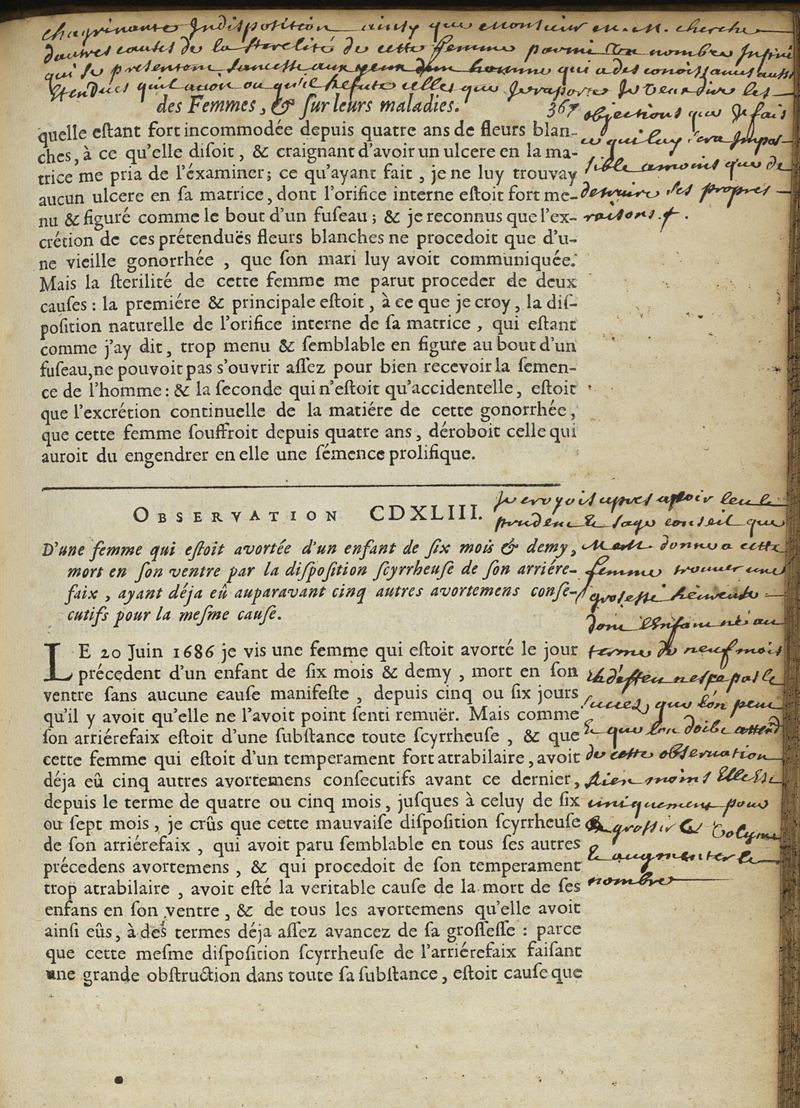 chagrinante Indisposition ainsy que monsieur m. M. cherche
dautres causes de la sterelité de cette femme parmi un nombre Infini
qui se presentent sanscesse aux yeux dun homme qui a des conoissances aussi
Etendues quil avoue ou qu'il refute celles que Je raporte Je veux dire les
des Femmes, & ſur leurs maladies. 367
objections que Je fais
ce qui luy sera Impos-
sible amoins que de
detruire ses propres
raisons.
quelle eſtant fort incommodée depuis quatre ans de fleurs blan-
ches, à ce qu'elle diſoit, & craignant d'avoir un ulcere en la ma-
trice me pria de l'éxaminer; ce qu'ayant fait, je ne luy trouvay
aucun ulcere en ſa matrice, dont l'orifice interne eſtoit fort me-
nu & figuré comme le bout d'un fuſeau; & je reconnus que l'ex-
crétion de ces prétenduës fleurs blanches ne procedoit que d'u-
ne vieille gonorrhée, que ſon mari luy avoit communiquée.
Mais la ſterilité de cette femme me parut proceder de deux
cauſes: la premiére & principale eſtoit, à ce que je croy, la diſ-
poſition naturelle de l'orifice interne de ſa matrice, qui eſtant
comme j'ay dit, trop menu & ſemblable en figure au bout d'un
fuſeau, ne pouvoit pas s'ouvrir aſſez pour bien recevoir la ſemen-
ce de l'homme: & la ſeconde qui n'eſtoit qu'accidentelle, eſtoit
que l'excrétion continuelle de la matiére de cette gonorrhée,
que cette femme ſouffroit depuis quatre ans, déroboit celle qui
auroit du engendrer en elle une ſémence prolifique.
OBSERVATION CDXLIII.
D'une femme qui eſtoit avortée d'un enfant de ſix mois & demy,
mort en ſon ventre par la diſpoſition ſcyrrheuſe de ſon arriére-
faix, ayant déja eû auparavant cinq autres avortemens conſé-
cutifs pour la meſme cauſe.
LE 20 Juin 1686 je vis une femme qui eſtoit avorté le jour
précedent d'un enfant de ſix mois & demy, mort en ſon
ventre ſans aucune cauſe manifeſte, depuis cinq ou ſix jours
qu'il y avoit qu'elle ne l'avoit point ſenti remuër. Mais comme
ſon arriérefaix eſtoit d'une ſubſtance toute ſcyrrheuſe, & que
cette femme qui eſtoit d'un temperament fort atrabilaire, avoit
déja eû cinq autres avortemens conſecutifs avant ce dernier,
depuis le terme de quatre ou cinq mois, juſques à celuy de ſix
ou ſept mois, je crûs que cette mauvaiſe diſpoſition ſcyrrheuſe
de ſon arriérefaix, qui avoit paru ſemblable en tous ſes autres
précedens avortemens, & qui procedoit de ſon temperament
trop atrabilaire, avoit eſté la veritable cauſe de la mort de ſes
enfans en ſon ventre, & de tous les avortemens qu'elle avoit
ainſi eûs, à des termes déja aſſez avancez de ſa groſſeſſe: parce
que cette meſme diſpoſition ſcyrrheuſe de l'arriérefaix faiſant
une grande obſtruction dans toute ſa ſubſtance, eſtoit cauſe que
Je croyois apres avoir leu le
prudent & sage conseil que
donne a cette
femme trouver une
grosesse heureuse
dont l'Enfant né au
terme de neuf mois
pas le
succes que lon peut
& que lon doibt attend
de cette observation
rien moins Elle Est
uniquement pour
grossir le volume
& augmenter le
nombre